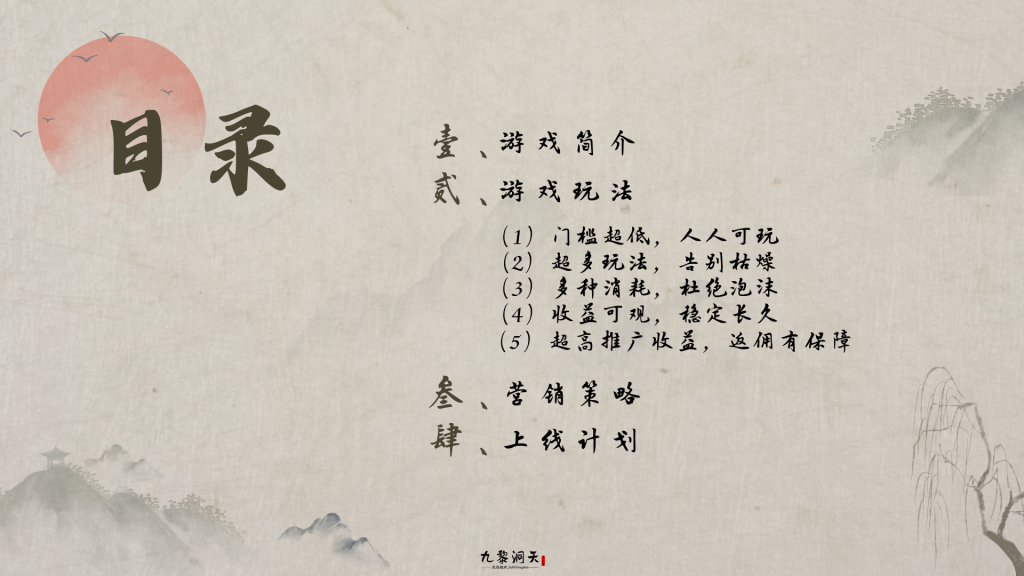 目录
壹、游戏简介
贰、游戏玩法
（1）门槛超低，人人可玩
（2）超多玩法，告别枯燥
（3）多种消耗，杜绝泡沫
（4）收益可观，稳定长久
（5）超高推广收益，返佣有保障
叁、营销策略
肆、上线计划
九黎洞天